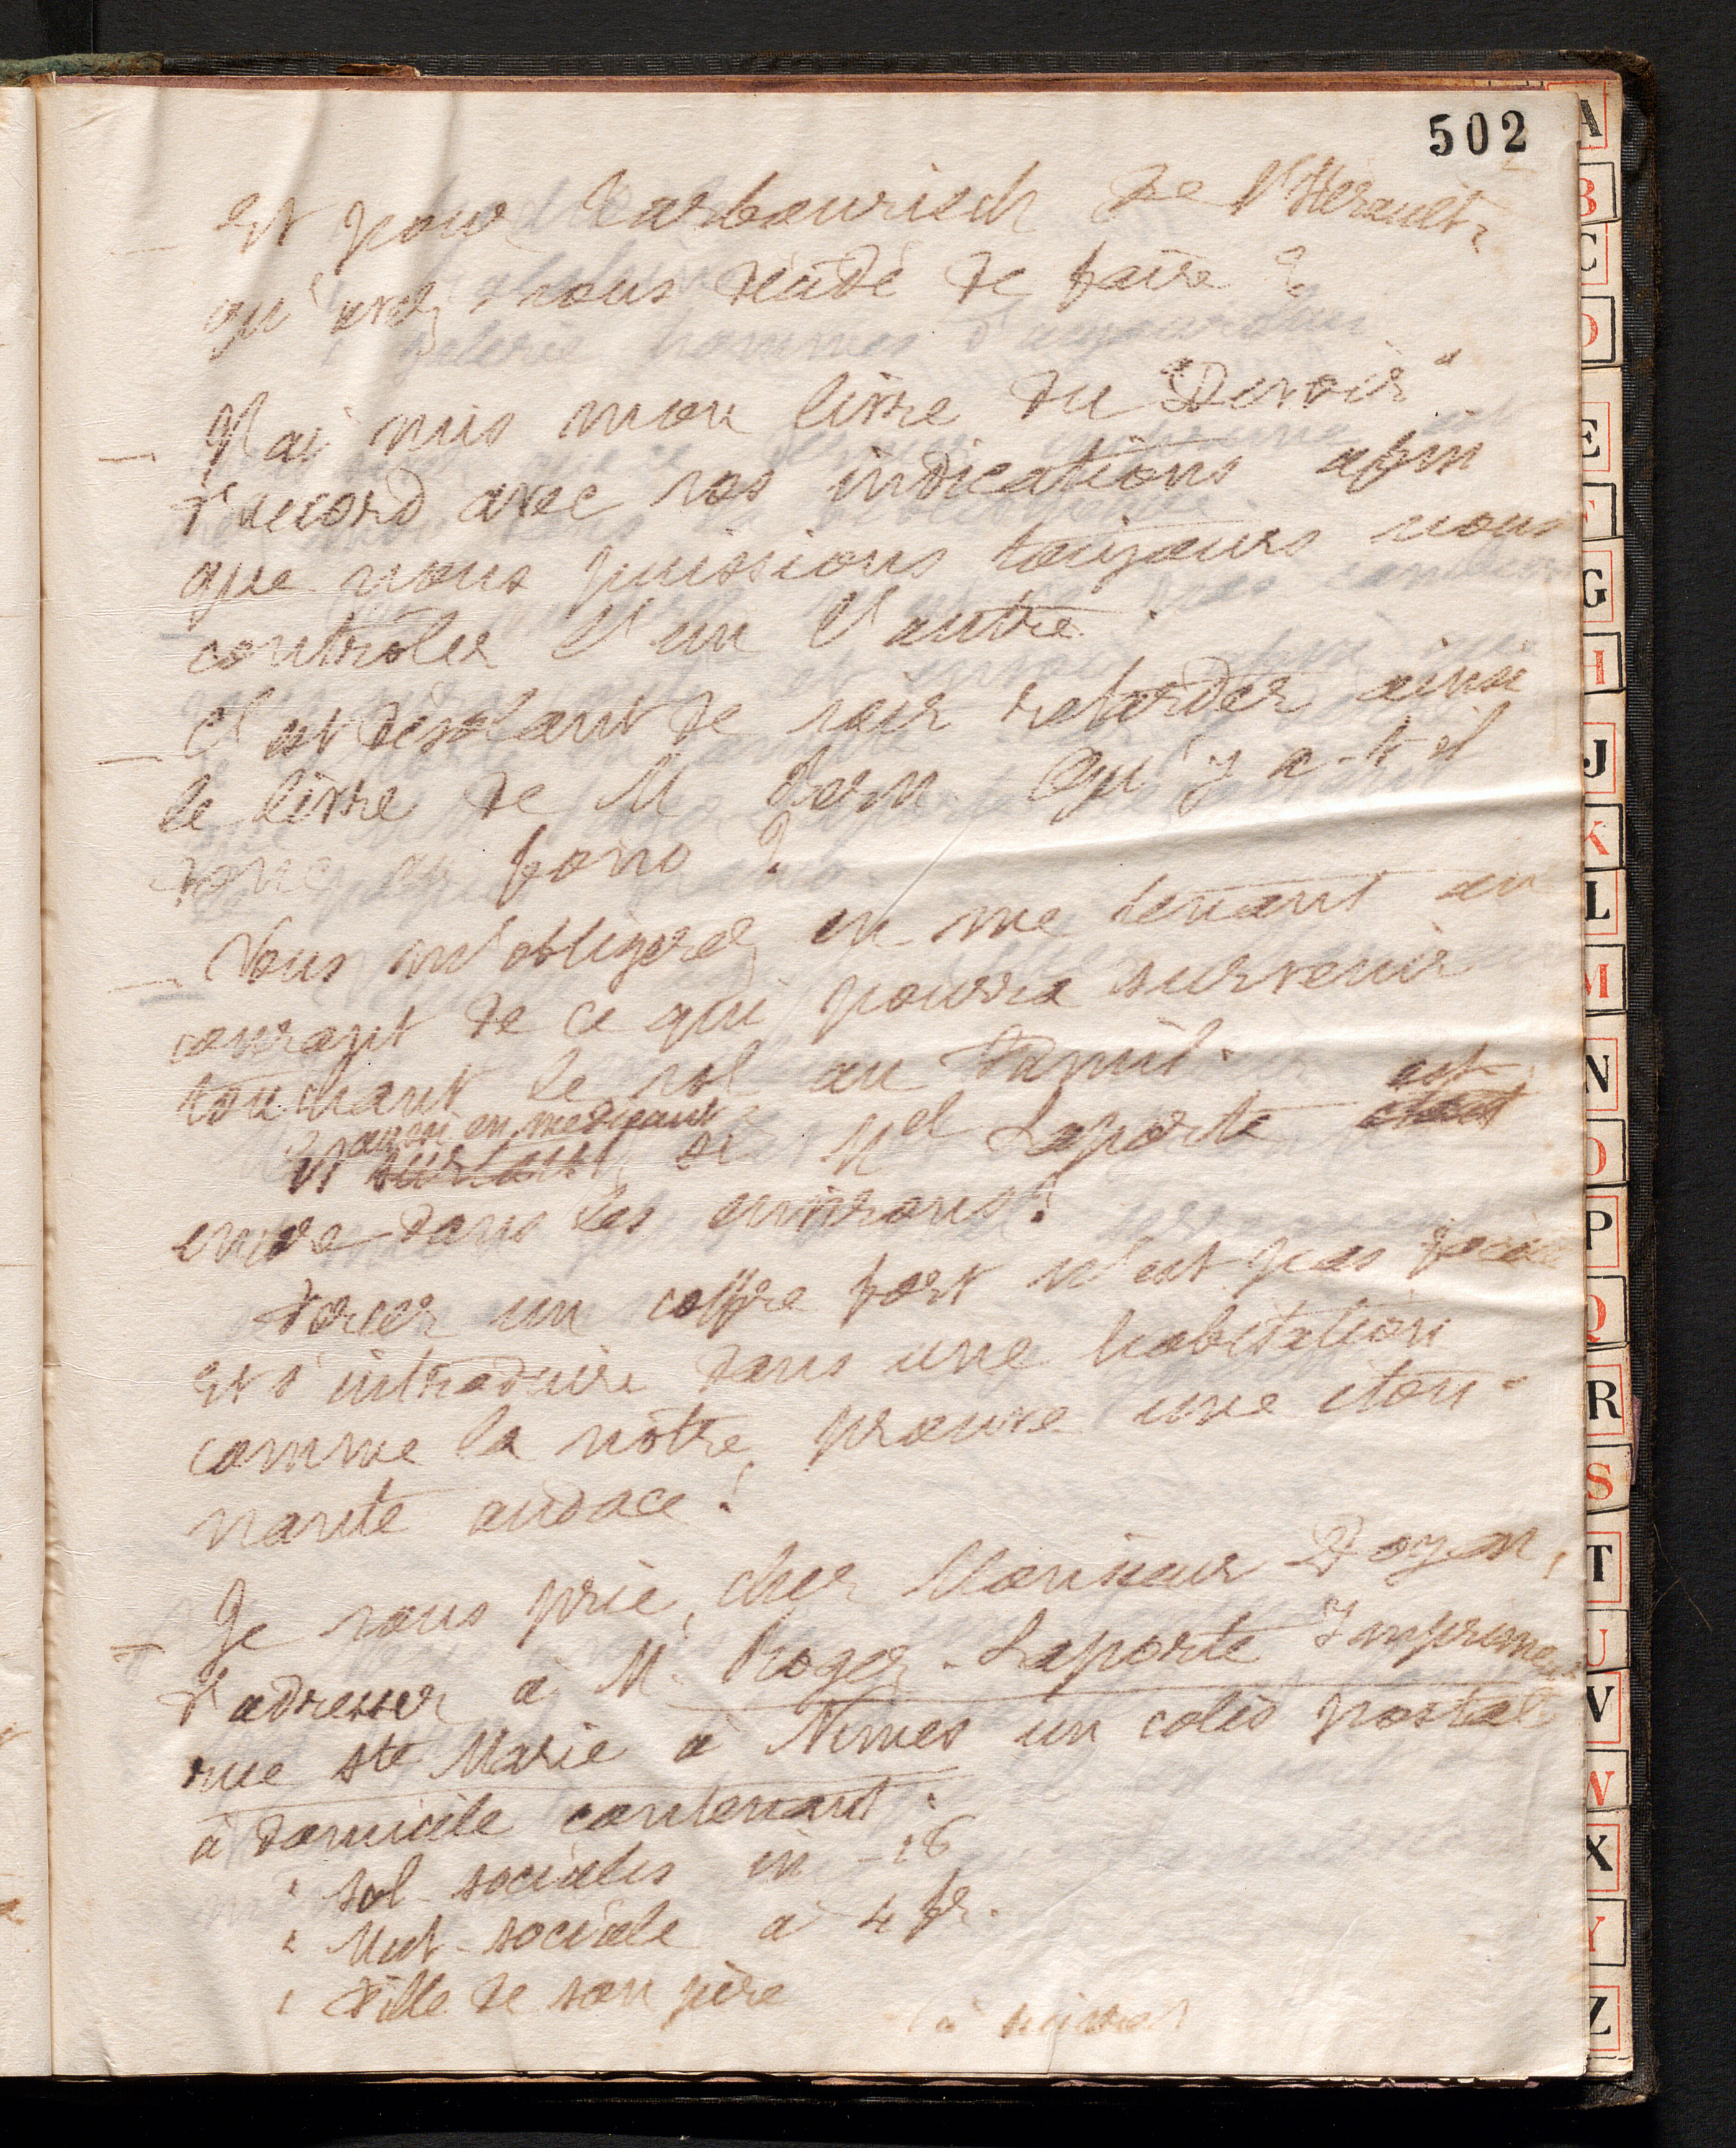 502
— Et pour Barbaurisch de l'Hérault,
qu'avez vous décidé de faire ?
— J'ai mis mon livre du "Devoir"
d'accord avec vos indications afin
que nous puissions toujours nous
contrôler l'un l'autre.
— C'est désolant de voir retarder ainsi
le livre de M Bern. Qu'y a-t-il
donc au fond ?
— Vous m'obligerez en me tenant au
courant de ce qui pourra survenir
touchant le vol au Familr.
Et aussi en me disant si Nel Laporte est
encore dans les environs!
Forcer un coffre fort n'est pas
et s'introduire dans une habitation
comme la nôtre, prouve une éton-
nante audace !
— Je vous prie, cher Monsieur Doyen,
d'adresser à M. Roger-Laporte Imprimeur
rue Ste Marie à Nimes un colis postal
à domicile contenant :
1 Sol. sociales in-18
1 Mut. sociale à 4 fr.
1 Fille de son père
à suivre
A
B
C
D
E
F
G
H
I
J
K
L
M
N
O
P
Q
R
S
T
U
V
W
X
Y
Z